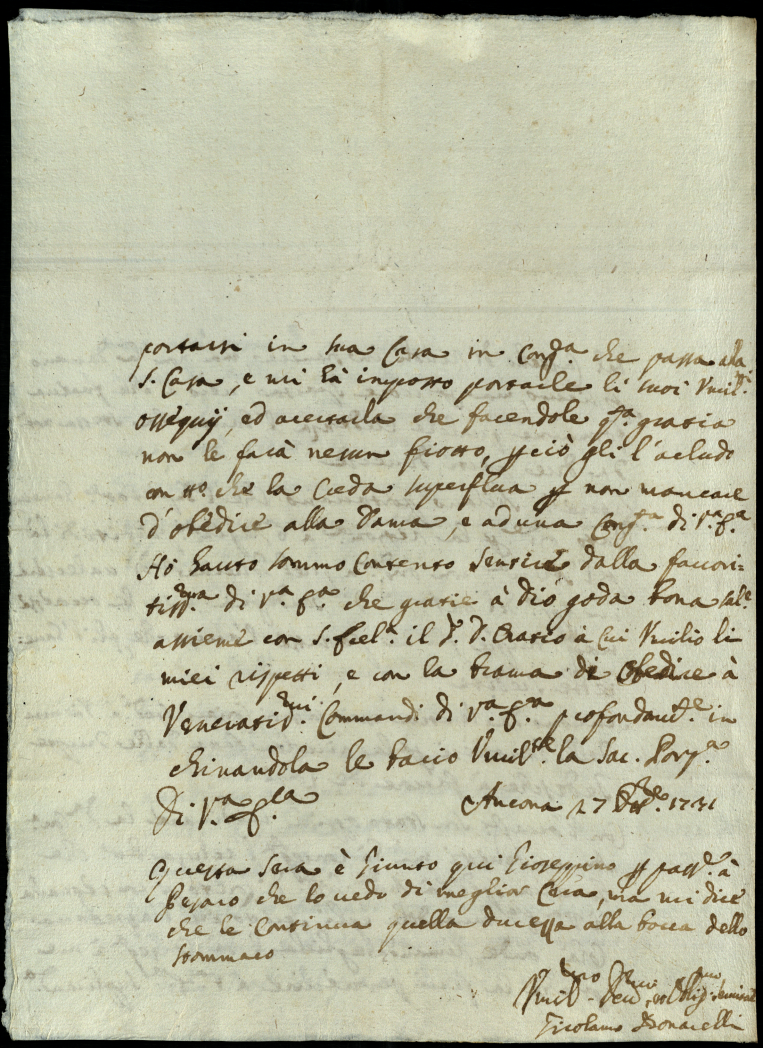 portarsi in sua Casa in Cong.a che passa alla
S. Casa, e mi hà imposto portarle li suoi Vmil.mi
ossequij, ed accertarla che facendole q.ta grazia
non le farà nesun ..., pciò gli l'acludo
con ... che la Creda superflua p non mancare
d'obedire alla Dama, e ad una Cong.ta di V.a E.a
Hò hauto sommo Contento sentire dalla fauori=
tiss.ma di V.a E.a che grazie à Dio goda bona sal.e
assieme con S. Ecel.a il S.r D. Orazio à Cui Vmilio li
miei rispetti, e con la brama di obedire à
Veneratis.mi Commandi di V.a E.a profondam.te in
chinandola le bacio Vmilm.te la Sac. Porp.a
Di V.a E.za Ancona 27 1731
Questa sera è Giunto qui Gioseppino p pass.e à
Pesaro che lo uedo di meglior Cera, ma mi dice
che le Continua quella durezza alla bocca dello
stommaco
Vmil.mo Deu.mo, ed Oblig.mo Seruitore
Girolamo Bonarelli